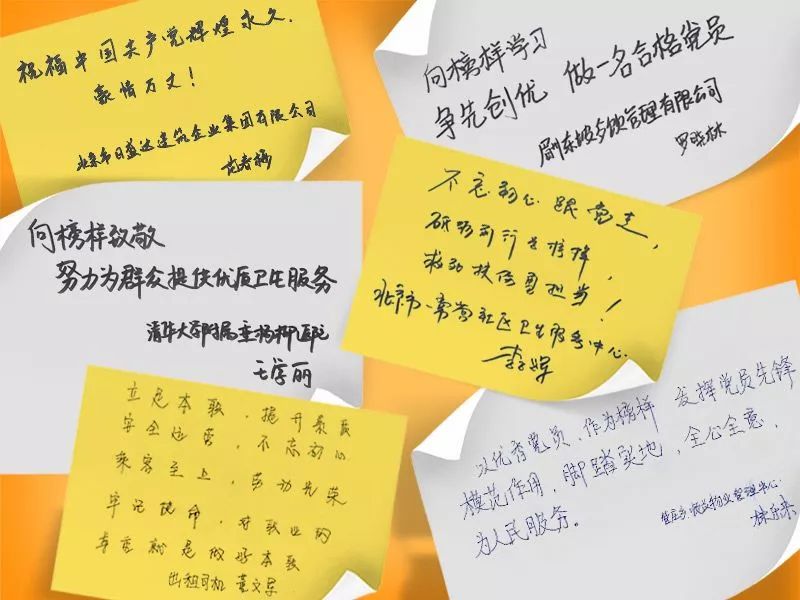 祝福中国共产党辉煌永久,
豪情万丈!
北京市日盛达建筑企业集团有限公司
范春彬
向榜样学习
争先创优 做一名合格党员
眉州东坡餐饮管理有限公司
罗晓林
不忘初心跟党走,
砥砺前行
救死扶伤勇担当!
北京市 社区卫生服务中心
李辉
向榜样致敬
努力为群众提供优质卫生服务
清华大学附属垂杨柳医院
王学丽
立足本职,提升素质
安全运营,不忘初心
乘客至上,劳动光荣
牢记使命,对职业的
尊重就是做好本职
出租司机 董文军
以优秀党员,作为榜样 发挥党员先锋
模范作用,脚踏实地,全心全意,
为人民服务。
物业管理中心: